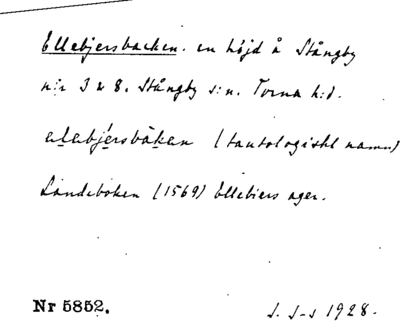 Ellebjersbacken. en höjd å Stångby
n:r 3 & 8. Stångby s:n. Torna h:d.
elebjersbakan (tautologiskt namn)
Landeboken (1569) Ellebiers ager.
Nr 5852. 1928.